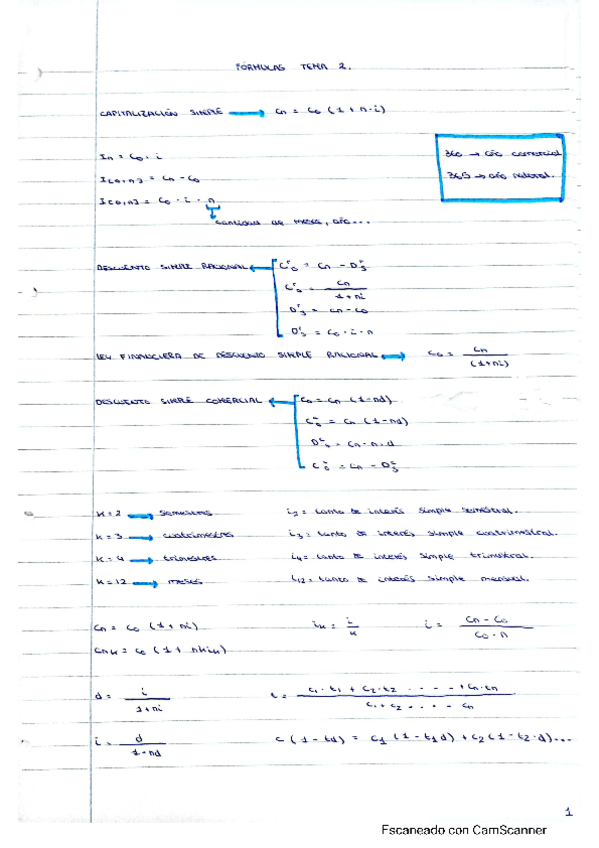 FÓRMULAS TEMA 2.
CAPITALIZACIÓN SIMPLE → Cn = Co (1 + n·i)
In = Co · i
360 → año comercial
I(o,n) = Cn - Co
365 → año natural.
I(o,n) = Co · i · n
cantidad de meses, año...
DESCUENTO SIMPLE RACIONAL ← C^r_o = Cn - D^r_s
C^r_o = Cn / (1 + ni)
D^r_s = Cn - Co
D^r_s = Co · i · n
LEY FINANCIERA DE DESCUENTO SIMPLE RACIONAL → Co = Cn / (1+ni)
DESCUENTO SIMPLE COMERCIAL ← Co = Cn (1-nd)
C^c_o = Cn (1-nd)
D^c_s = Cn · n · d
C^c_o = Cn - D^c_s
K = 2 → semestres i2 = tanto de interés simple semestral.
K = 3 → cuatrimestres i3 = tanto de interés simple cuatrimestral.
K = 4 → trimestres i4 = tanto de interés simple trimestral.
K = 12 → meses i12 = tanto de interés simple mensual.
Cn = Co (1 + ni) iK = i / K i = (Cn - Co) / (Co · n)
CnK = Co (1 + nKiK)
d = i / (1+ni) t = (C1 · t1 + C2 · t2 ..... + Cn · tn) / (C1 + C2 ..... Cn)
i = d / (1-nd) C (1 - td) = C1 (1 - t1d) + C2 (1 - t2·d)...
1
Escaneado con CamScanner